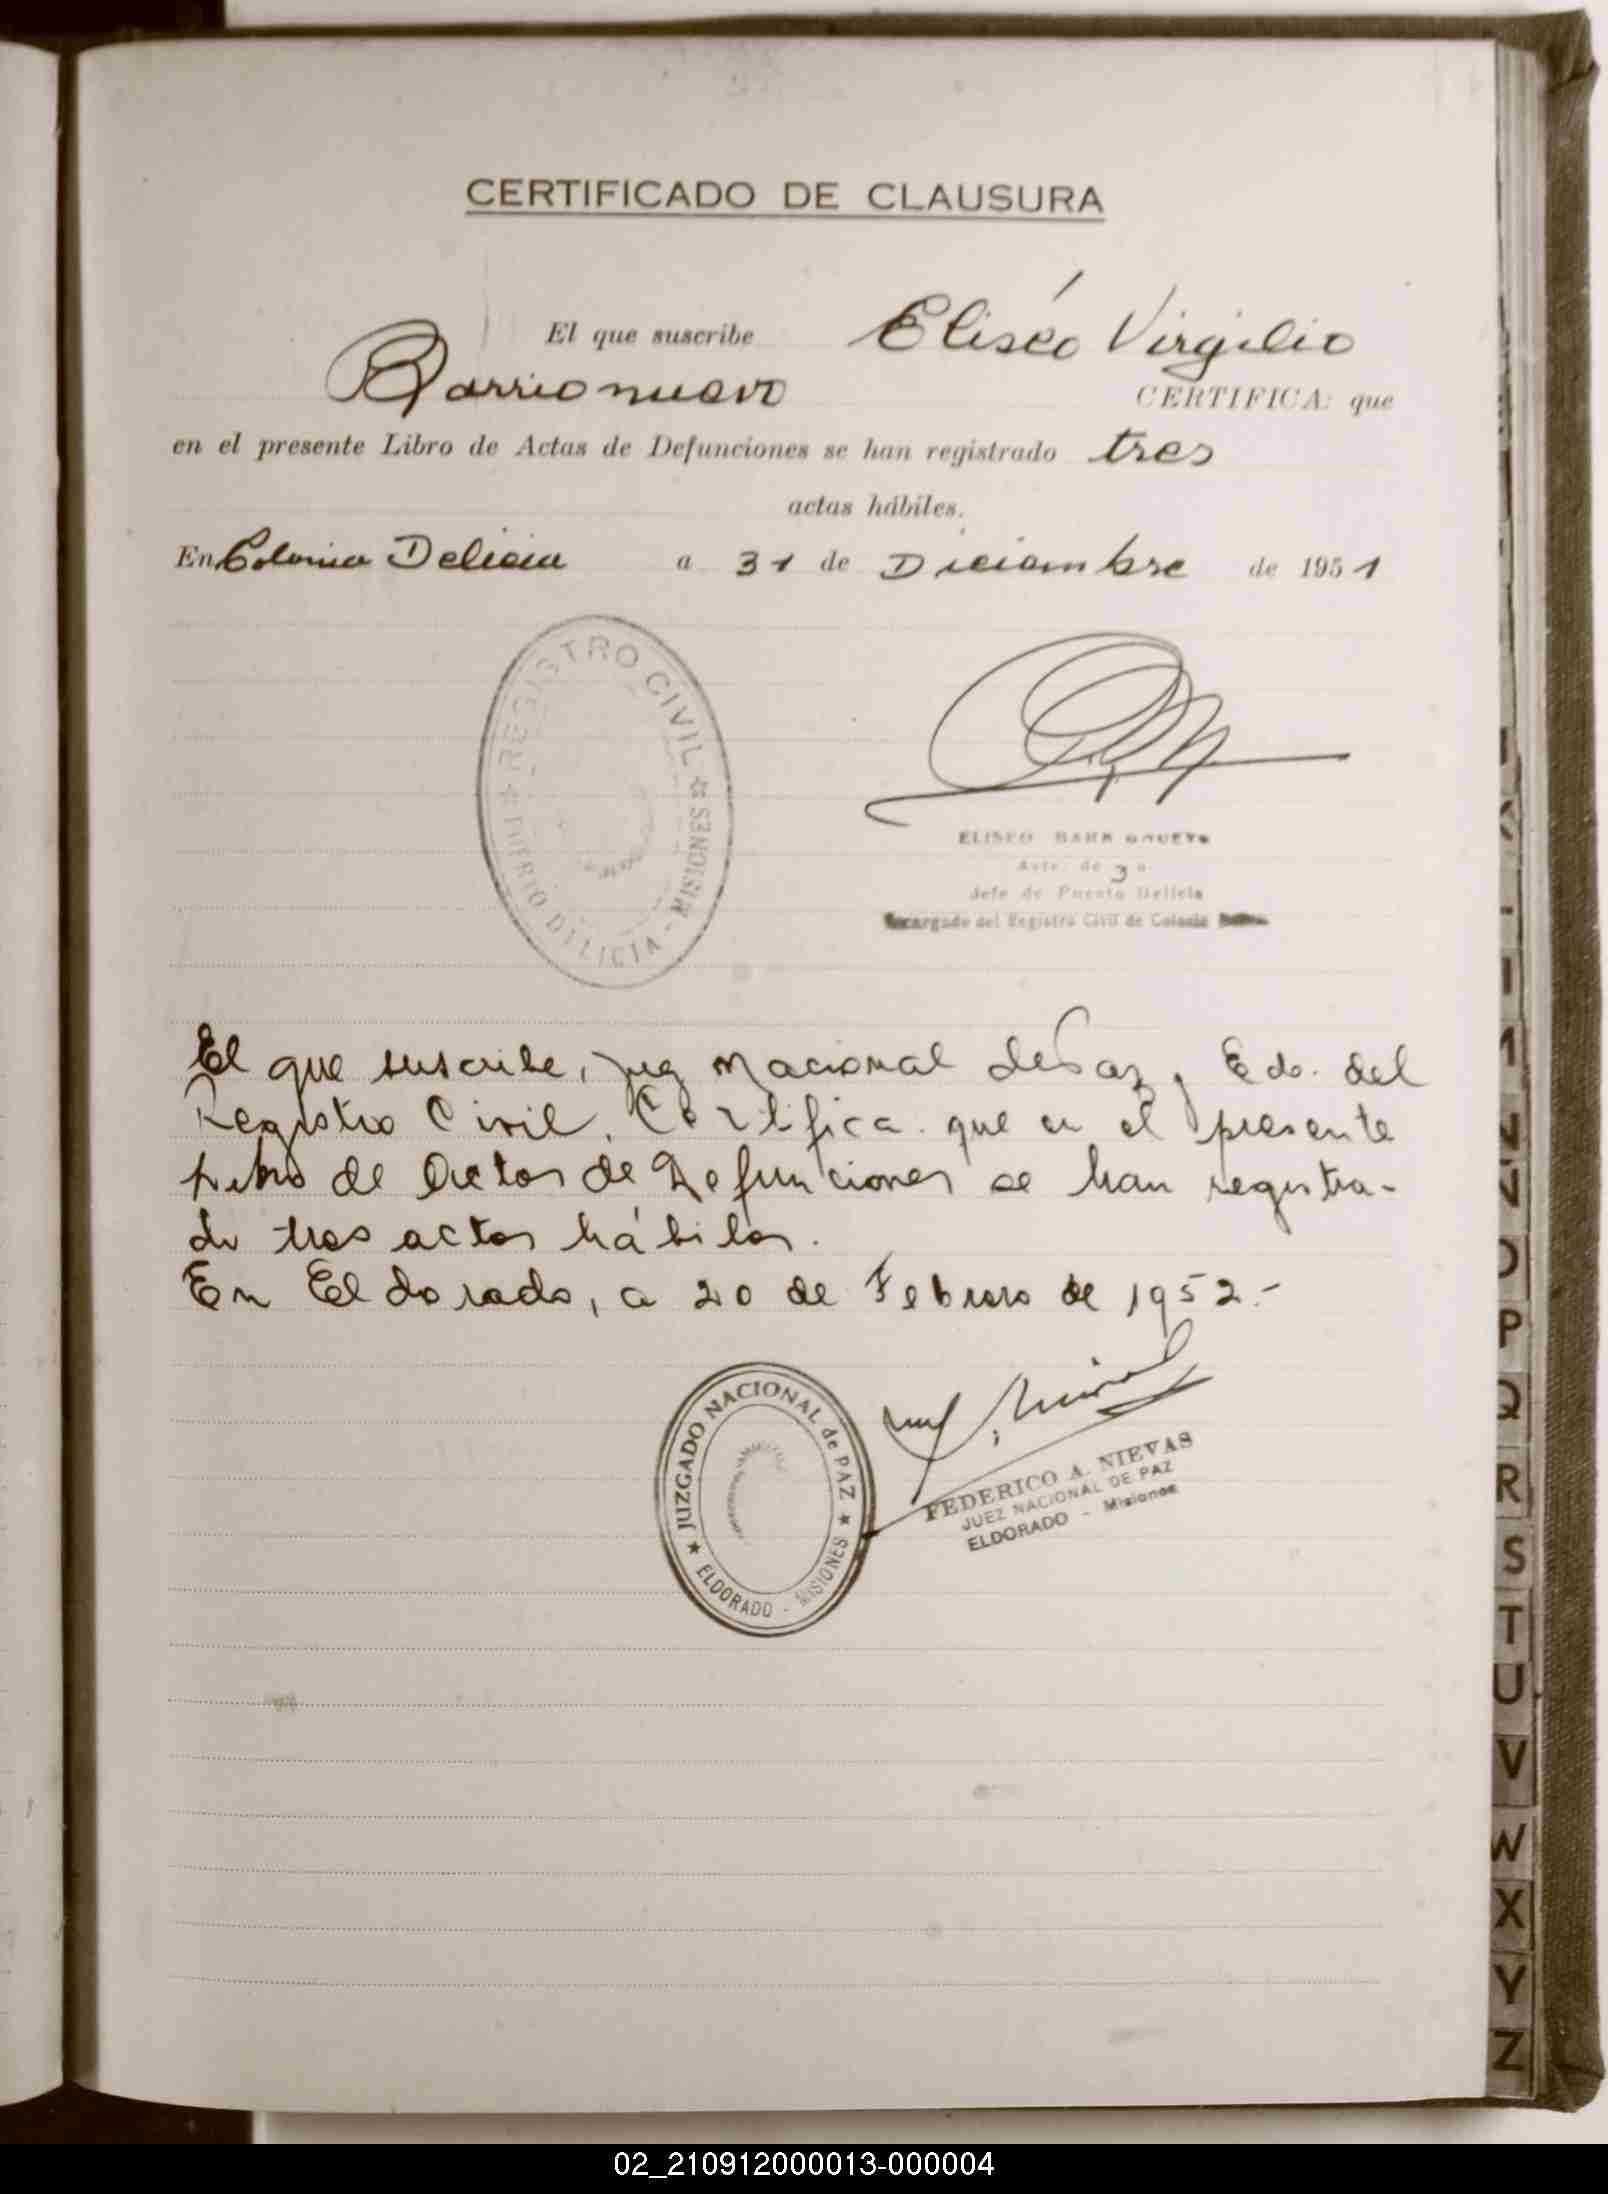 CERTIFICADO DE CLAUSURA
El que suscribe Eliséo Virgilio
Barrionuevo CERTIFICA: que
en el presente Libro de Actas de Defunciones se han registrado tres
actas hábiles.
En Colonia Delicia a 31 de Diciembre de 1951
REGISTRO CIVIL
PUERTO DELICIA - MISIONES
ELISEO BARRIONUEVO
Ayte. de 3a
Jefe de Puerto Delicia
Encargado del Registro Civil de Colonia
El que suscribe, juez Nacional de Paz, Edo. del
Registro Civil, Certifica que en el presente
Libro de Actas de Defunciones se han registra-
do tres actas hábiles.
En Eldorado, a 20 de Febrero de 1952.-
JUZGADO NACIONAL de PAZ
ELDORADO - MISIONES
FEDERICO A. NIEVAS
JUEZ NACIONAL DE PAZ
ELDORADO - Misiones
M
N
Ñ
O
P
Q
R
S
T
U
V
W
X
Y
Z
02_210912000013-000004